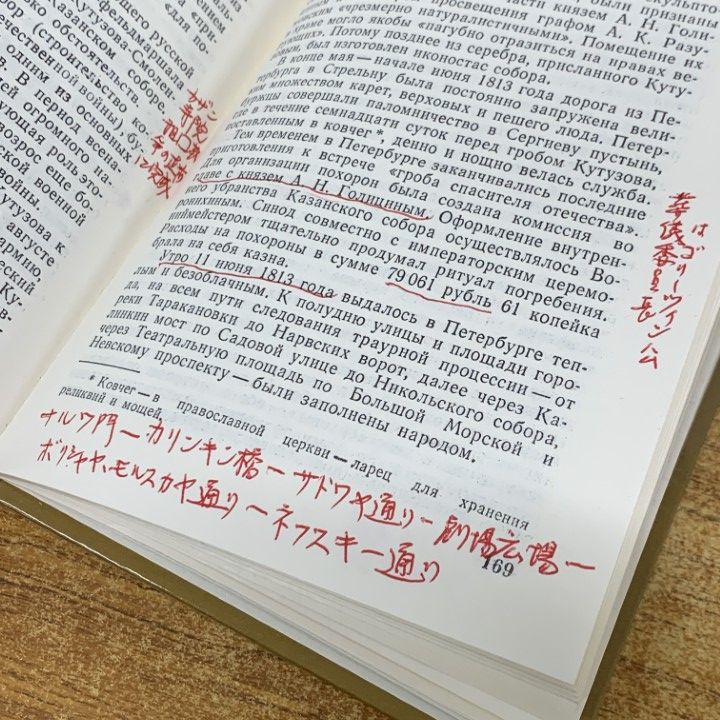 нашего русской
фельдмаршала
Кутузова-Смолен
Казанском соборе.
обстоятельств.
ечественной войны), бу
одним из основных
В период всена-
военной
армию
августе
Кутузова к
князем А. Н. Голи-
«чрезмерно натуралистичными».
просвещения графом А. К. Разу-
храме могло якобы «пагубно отразиться на нравах ве-
рующих». Потому позднее из серебра, присланного Куту-
зовым, был изготовлен иконостас собора.
В конце мая — начале июня 1813 года дорога из Пе-
тербурга в Стрельну была постоянно запружена вели-
ким множеством карет, верховых и пешего люда. Петер-
буржцы совершали паломничество в Сергиеву пустынь,
где в течение семнадцати суток перед гробом Кутузова,
поставленным в ковчег*, денно и нощно велась служба.
Тем временем в Петербурге заканчивались последние
приготовления к встрече «гроба спасителя отечества».
Для организации похорон была создана комиссия во
главе с князем А. Н. Голициным. Оформление внутрен-
него убранства Казанского собора осуществлялось Во-
ронихиным. Синод совместно с императорским церемо-
ниймейстером тщательно продумал ритуал погребения.
Расходы на похороны в сумме 79 061 рубль 61 копейка
брала на себя казна.
Утро 11 июня 1813 года выдалось в Петербурге теп-
лым и безоблачным. К полудню улицы и площади горо-
да, на всем пути следования траурной процессии — от
реки Таракановки до Нарвских ворот, далее через Ка-
линкин мост по Садовой улице до Никольского собора,
через Театральную площадь по Большой Морской и
Невскому проспекту — были заполнены народом.
* Ковчег — в православной церкви — ларец для хранения
реликвий и мощей.
ナルワ門ーカリンキン橋ーサドワヤ通りー劇場広場ー
ボリシャヤ・モルスカヤ通りーネフスキー通り
169
葬儀委員長
はゴリーツィン公
カザン